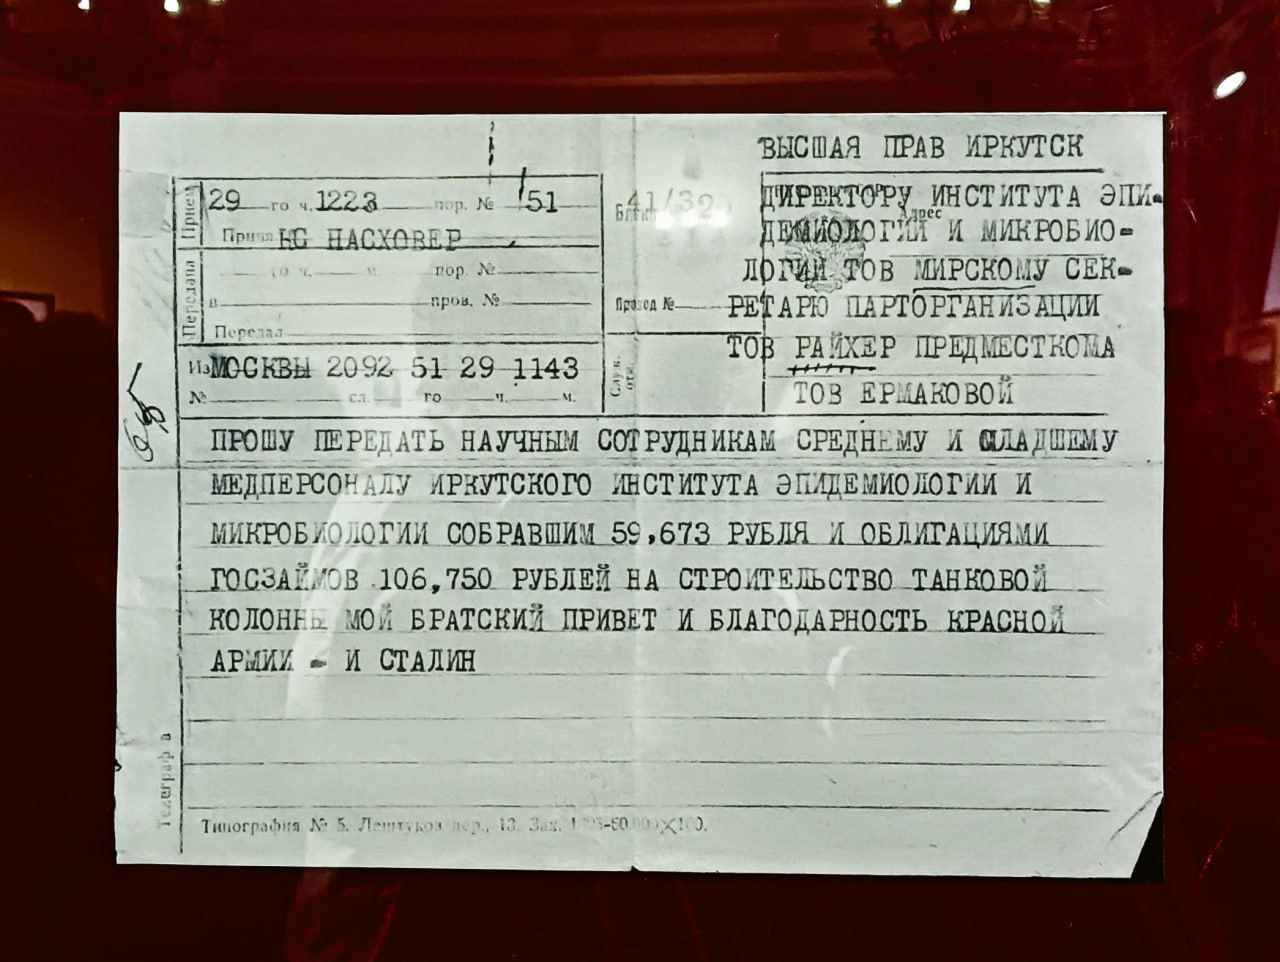 ВЫСШАЯ ПРАВ ИРКУТСК
Прием 29 го ч. 1223 пор. № 51
КС НАСХОВЕР
41/320
ДИРЕКТОРУ ИНСТИТУТА ЭПИ-
Адрес
ДЕМИОЛОГИИ И МИКРОБИО-
ЛОГИИ ТОВ МИРСКОМУ СЕК-
РЕТАРЮ ПАРТОРГАНИЗАЦИИ
ТОВ РАЙХЕР ПРЕДМЕСТКОМА
ТОВ ЕРМАКОВОЙ
Передана го ч. м. пор. №
в пров. №
Передал
Провод №
Из МОСКВЫ 2092 51 29 1143
№ сл. го ч. м.
Служ. отм.
ПРОШУ ПЕРЕДАТЬ НАУЧНЫМ СОТРУДНИКАМ СРЕДНЕМУ И МЛАДШЕМУ
МЕДПЕРСОНАЛУ ИРКУТСКОГО ИНСТИТУТА ЭПИДЕМИОЛОГИИ И
МИКРОБИОЛОГИИ СОБРАВШИМ 59,673 РУБЛЯ И ОБЛИГАЦИЯМИ
ГОСЗАЙМОВ 106,750 РУБЛЕЙ НА СТРОИТЕЛЬСТВО ТАНКОВОЙ
КОЛОННЫ МОЙ БРАТСКИЙ ПРИВЕТ И БЛАГОДАРНОСТЬ КРАСНОЙ
АРМИИ - И СТАЛИН
Телеграф в
Типография № 5. Лештуков пер., 13. Зак.